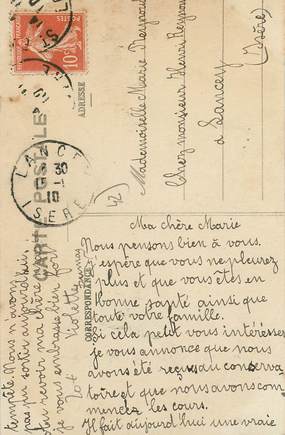 CARTE POSTALE
CORRESPONDANCE
ADRESSE
10c
LANCE
30
10
ISERE
Mademoiselle Marie
Chez monsieur Henri
à
(Isère)
42
Ma chère Marie
Nous pensons bien à vous,
j'espère que vous ne pleurez
plus et que vous êtes en
bonne santé ainsi que
toute votre famille.
Si cela peut vous intéresser
je vous annonce que nous
avons été reçus au conserva
toire et que nous avons com
mencé les cours.
Il fait aujourd'hui une vraie
tempête. Nous n'avons
pas pu sortir aujourd'hui.
au revoir ma chère
je vous embrasse bien fort
Violette